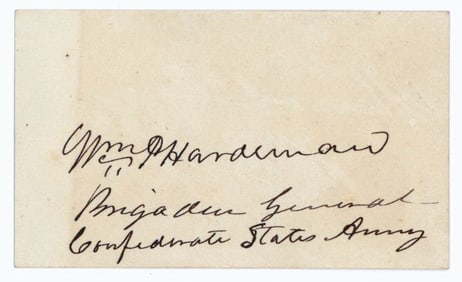 Wm P Hardeman
Brigadier General
Confederate States Army